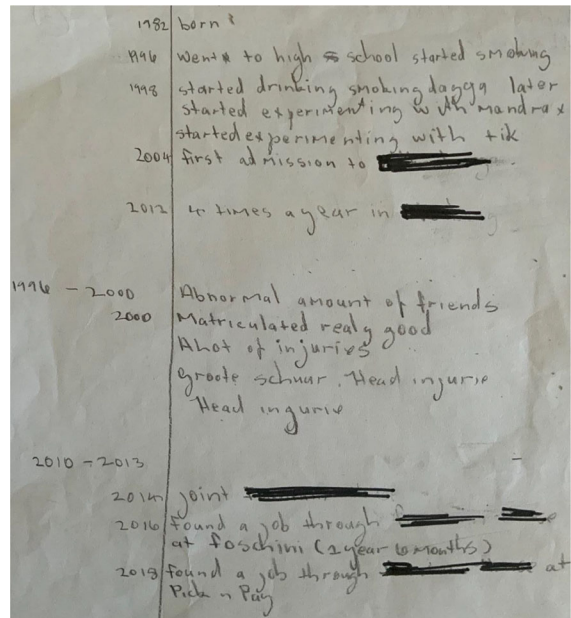 1982 born
1996 went to high school started smoking
1998 started drinking smoking dagga later
started experimenting with mandrax
started experimenting with tik
2004 first admission to
2012 4 times a year in
1996 - 2000 Abnormal amount of friends
2000 Matriculated realy good
Alot of injuries
groote schuur. Head ingurie
Head ingurie
2010 - 2013
2014 joint
2016 found a job through
at foschini (1 year 6 months)
2018 found a job through at
Pick n Pay